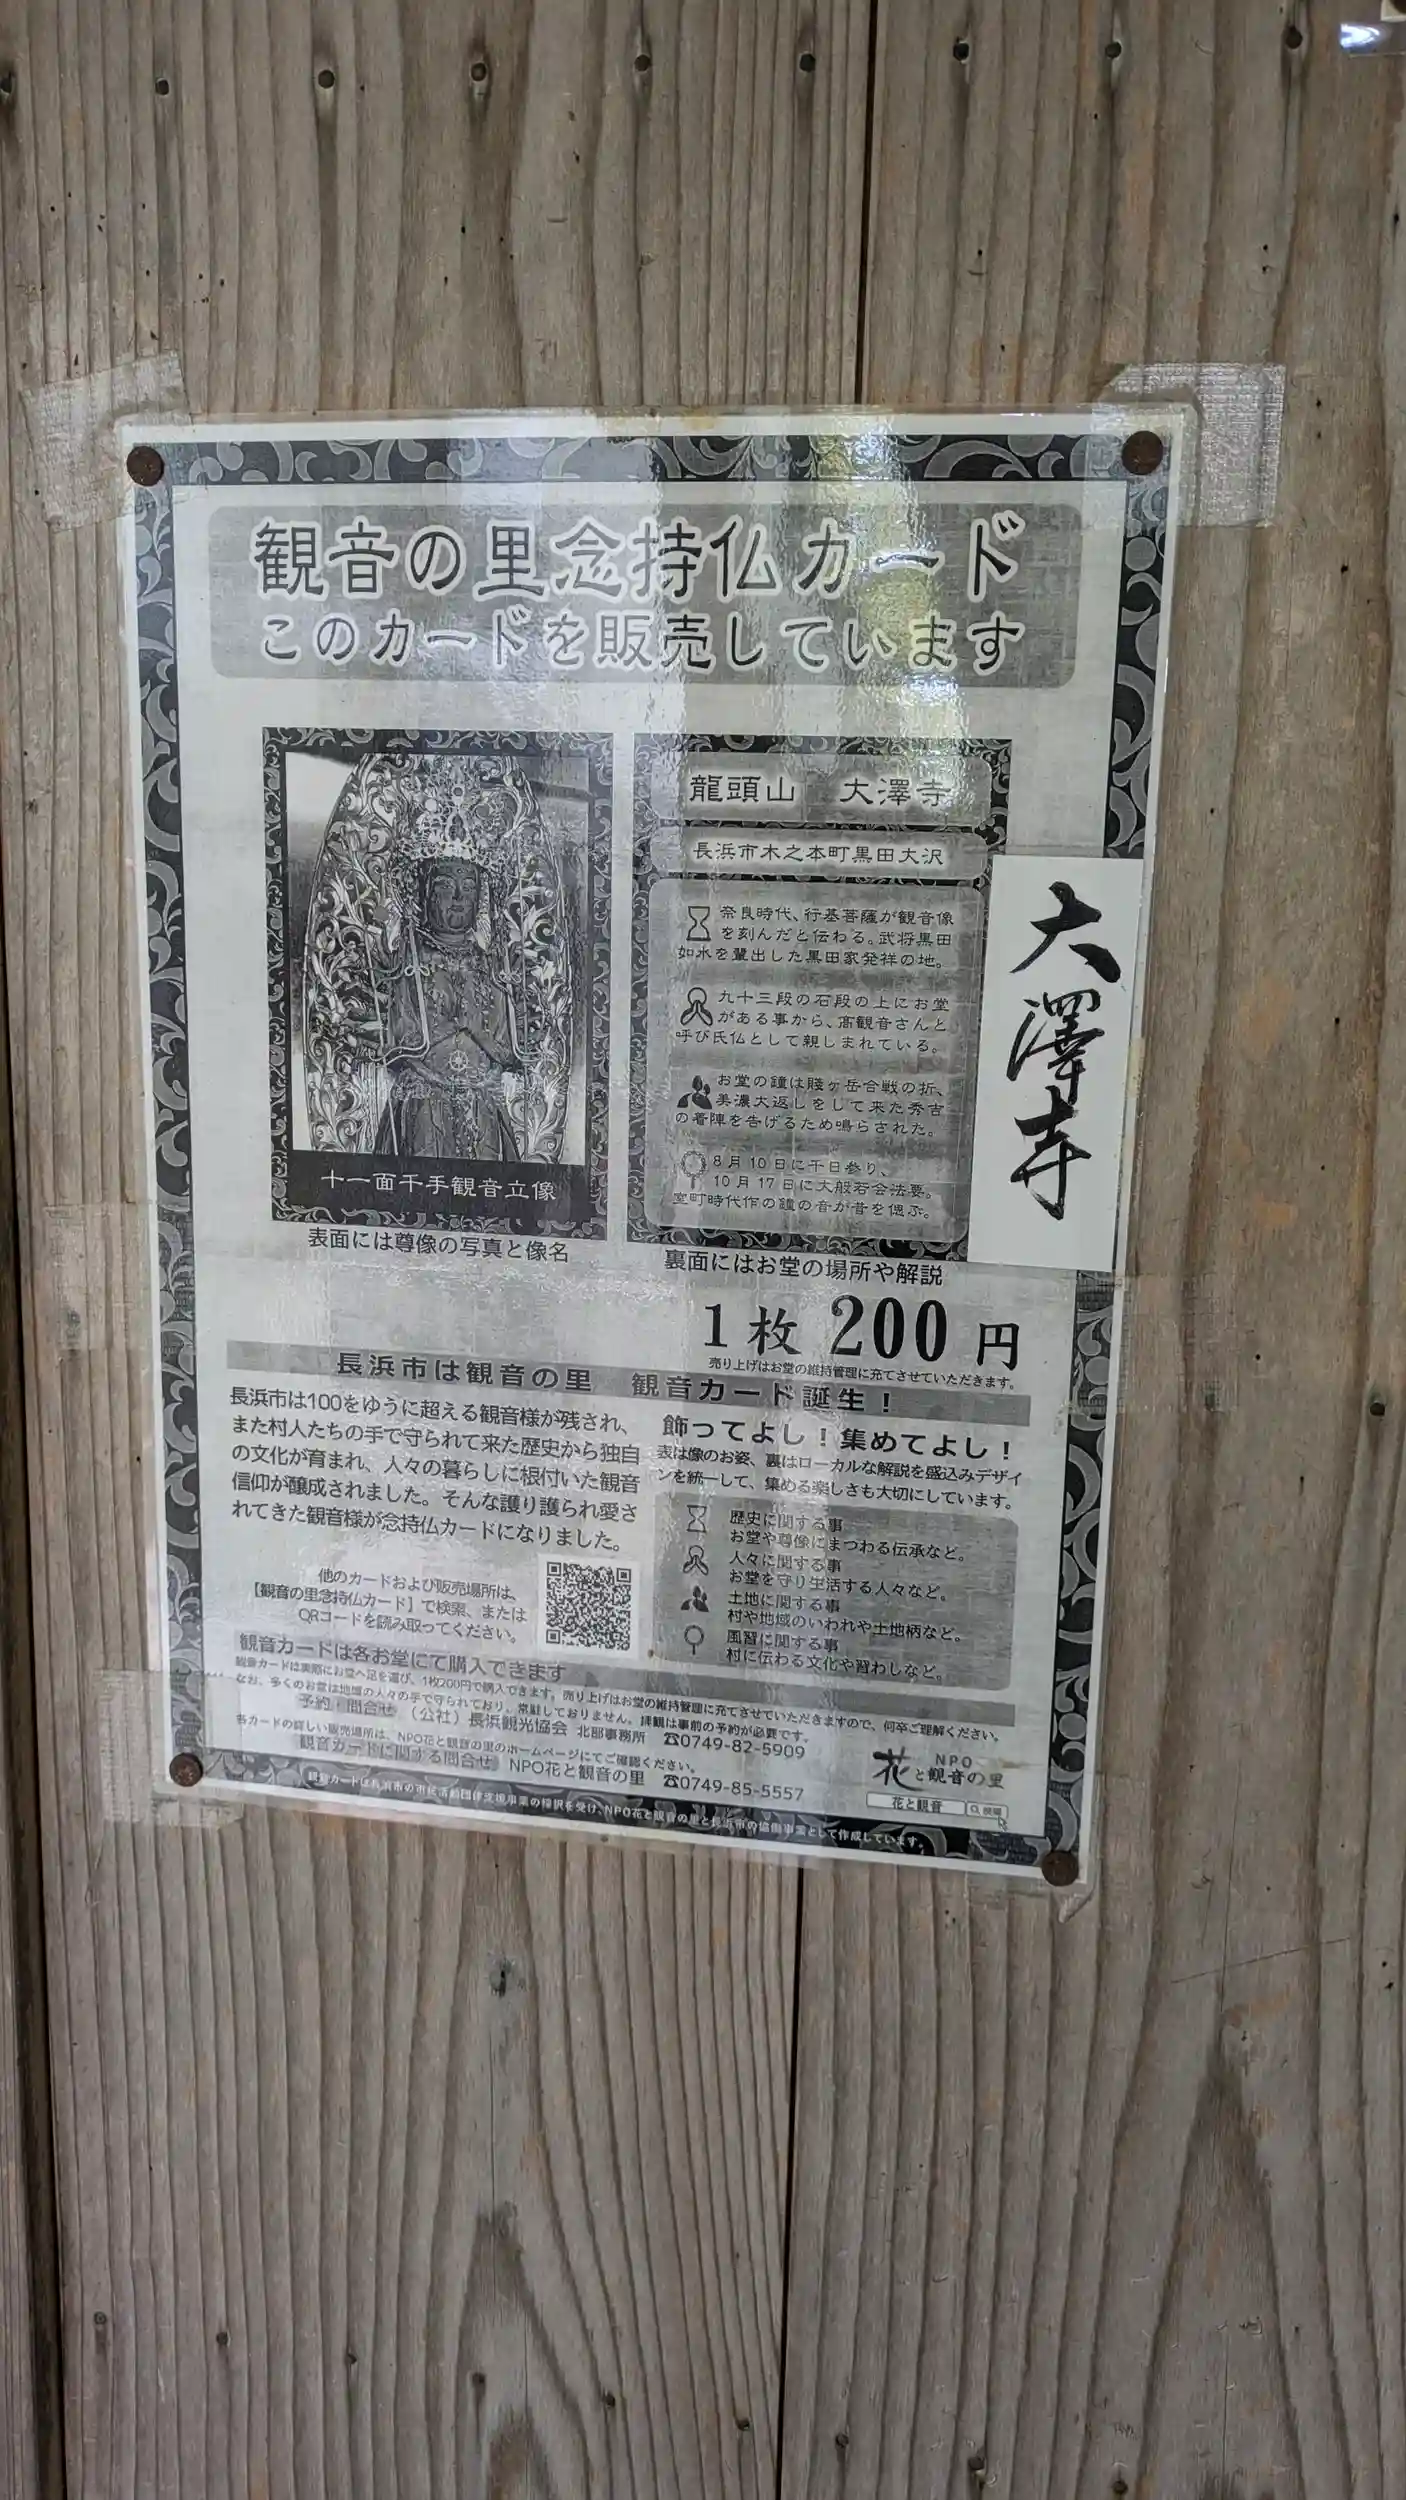 観音の里念持仏カード
このカードを販売しています
十一面千手観音立像
表面には尊像の写真と像名
龍頭山 大澤寺
長浜市木之本町黒田大沢
奈良時代、行基菩薩が観音像
を刻んだと伝わる。武将黒田
如水を輩出した黒田家発祥の地。
九十三段の石段の上にお堂
がある事から、高観音さんと
呼び氏仏として親しまれている。
お堂の鐘は賤ヶ岳合戦の折、
美濃大返しをして来た秀吉
の着陣を告げるため鳴らされた。
8月10日に千日参り、
10月17日に大般若会法要。
室町時代作の鐘の音が昔を偲ぶ。
裏面にはお堂の場所や解説
大澤寺
1枚 200 円
売り上げはお堂の維持管理に充てさせていただきます。
長浜市は観音の里 観音カード誕生！
長浜市は100をゆうに超える観音様が残され、
また村人たちの手で守られて来た歴史から独自
の文化が育まれ、人々の暮らしに根付いた観音
信仰が醸成されました。そんな護り護られ愛さ
れてきた観音様が念持仏カードになりました。
他のカードおよび販売場所は、
【観音の里念持仏カード】で検索、または
QRコードを読み取ってください。
飾ってよし！集めてよし！
表は像のお姿、裏はローカルな解説を盛込みデザイ
ンを統一して、集める楽しさも大切にしています。
歴史に関する事
お堂や尊像にまつわる伝承など。
人々に関する事
お堂を守り生活する人々など。
土地に関する事
村や地域のいわれや土地柄など。
風習に関する事
村に伝わる文化や習わしなど。
観音カードは各お堂にて購入できます
観音カードは実際にお堂へ足を運び、1枚200円で購入できます。売り上げはお堂の維持管理に充てさせていただきますので、何卒ご理解ください。
なお、多くのお堂は地域の人々の手で守られており、常駐しておりません。拝観は事前の予約が必要です。
予約・問合せ （公社）長浜観光協会 北部事務所 ☎0749-82-5909
各カードの詳しい販売場所は、NPO花と観音の里のホームページにてご確認ください。
観音カードに関する問合せ NPO花と観音の里 ☎0749-85-5557
NPO
花と観音の里
花と観音 検索
観音カードは長浜市の市民活動団体支援事業の採択を受け、NPO花と観音の里と長浜市の協働事業として作成しています。